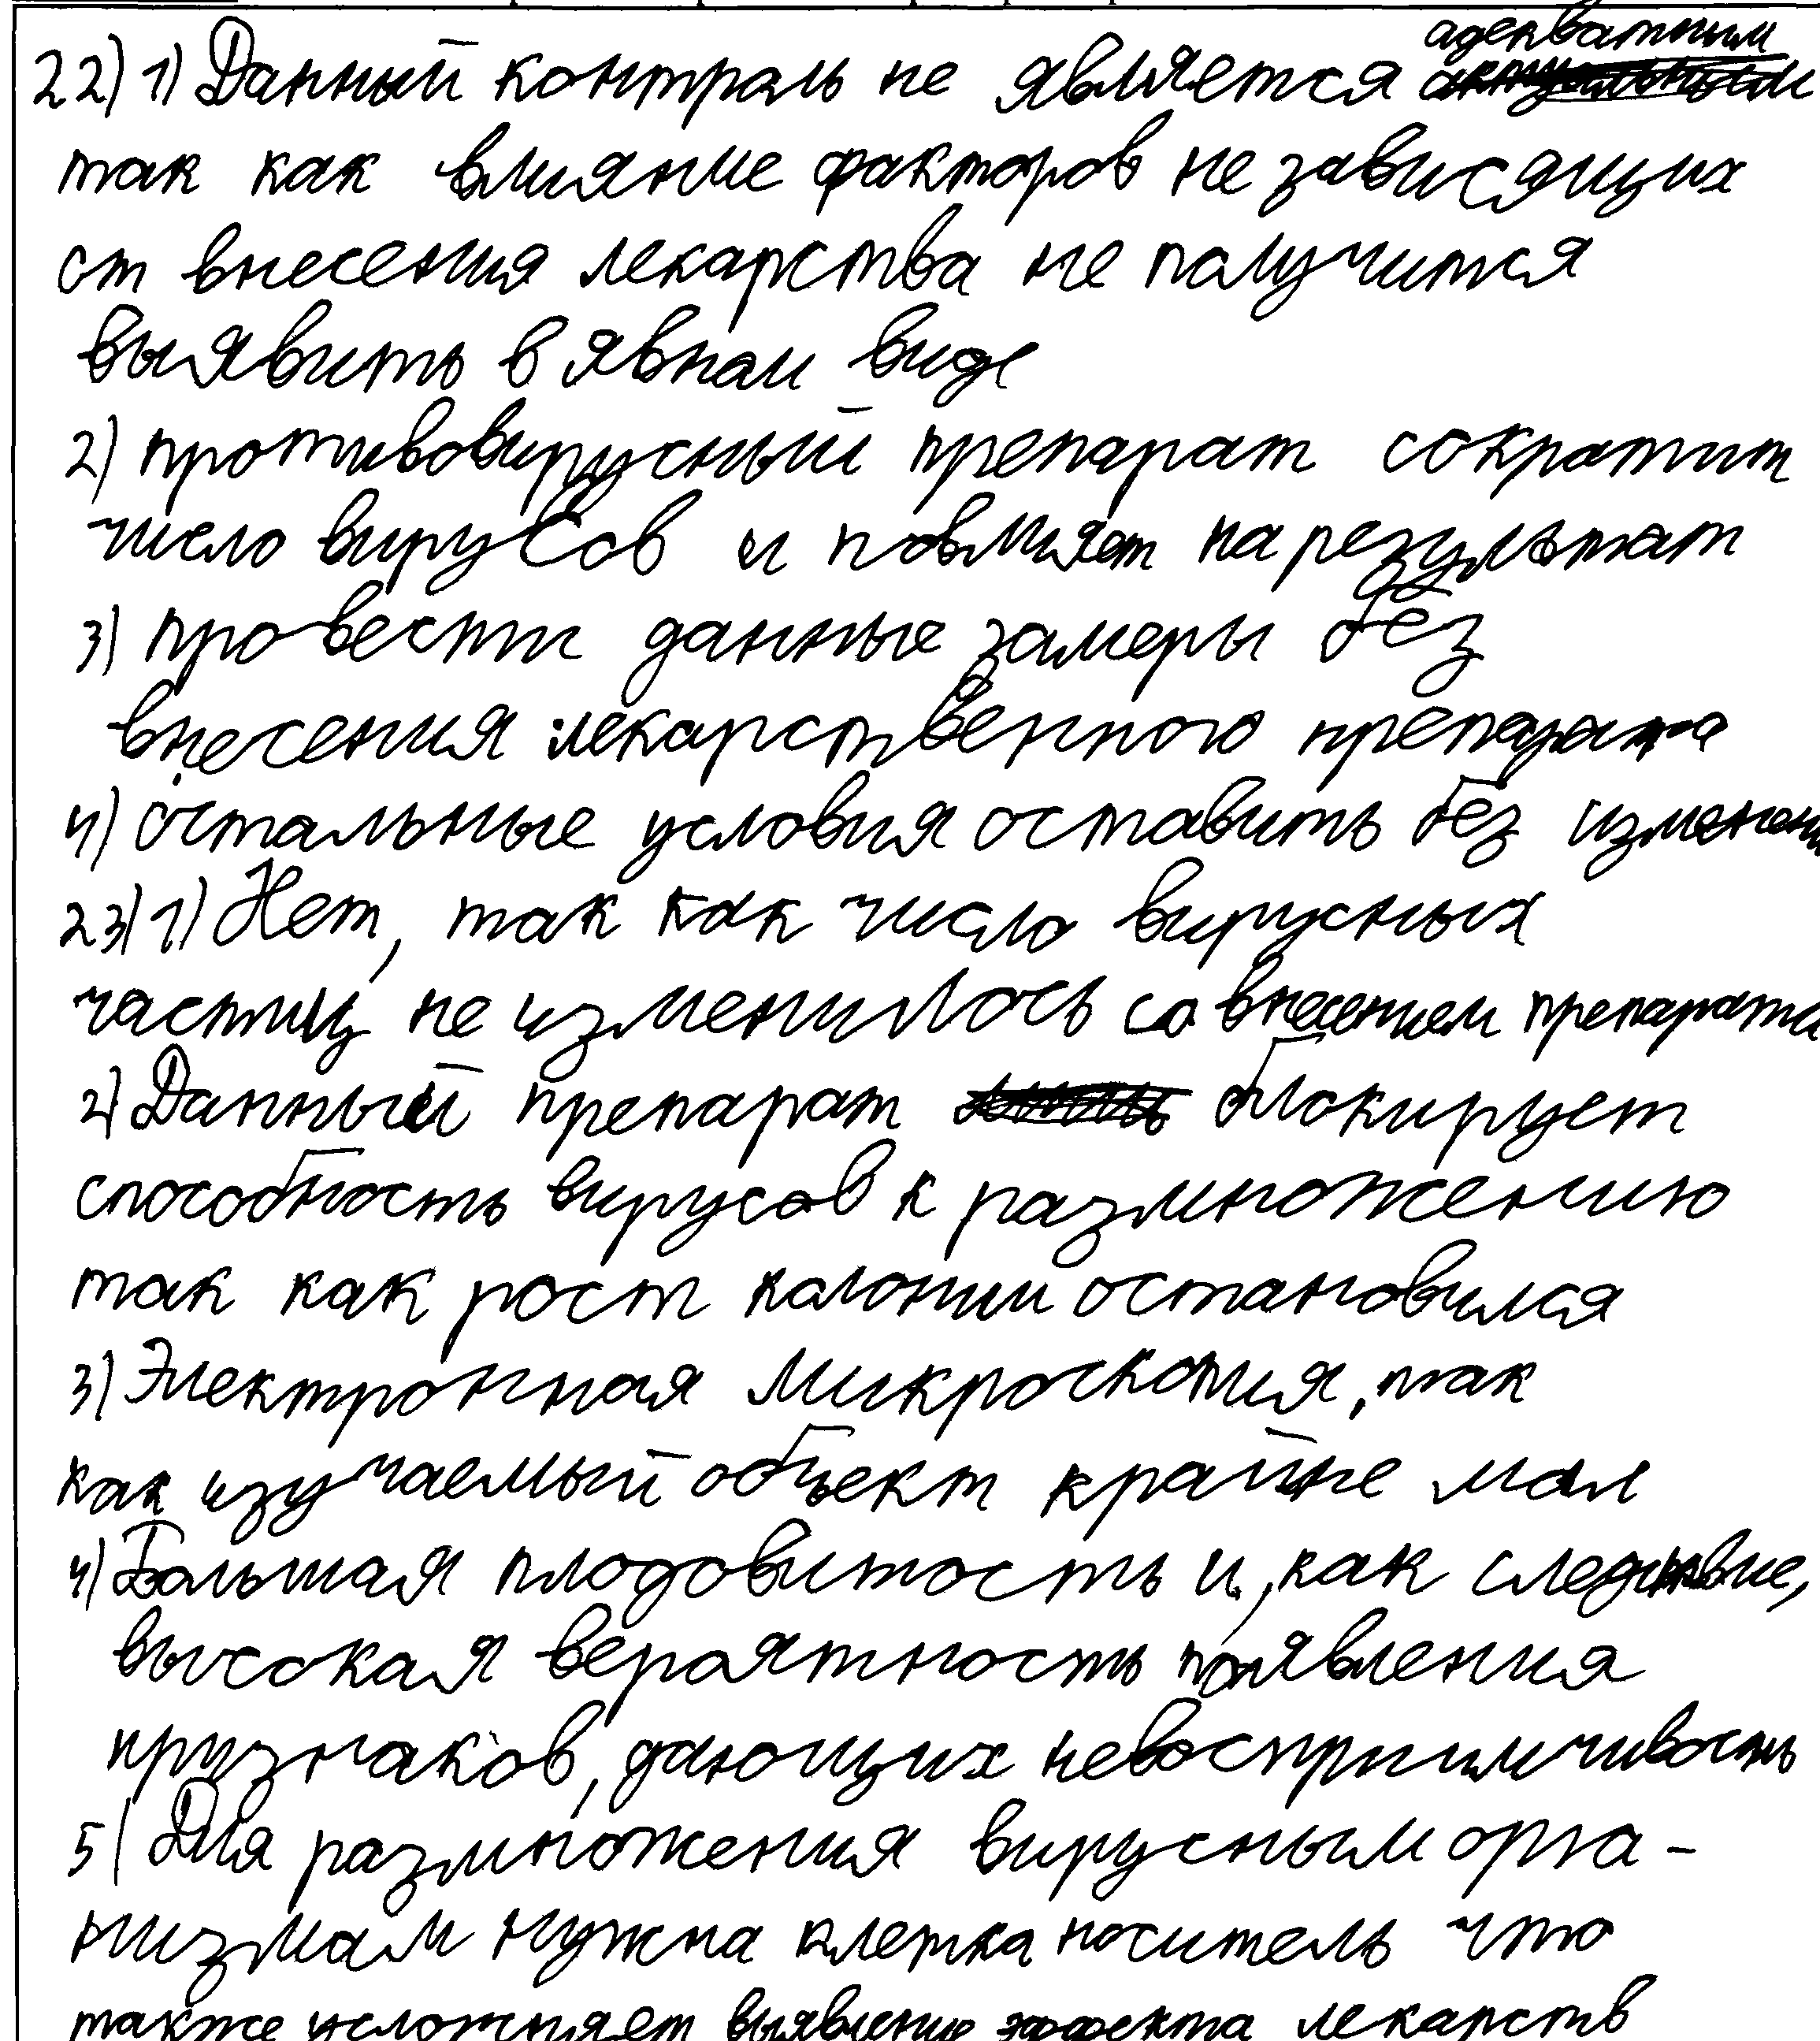 адекватным
22) 1) Данный контроль не является
так как влияние факторов не зависящих
от внесения лекарства не получится
выявить в явном виде
2) противовирусный препарат сократит
число вирусов и повлияет на результат
3) провести данные замеры без
внесения лекарственного препарата
4) остальные условия оставить без изменени
23) 1) Нет, так как число вирусных
частиц не изменилось со внесением препарата
2) Данный препарат блокирует
способность вирусов к размножению
так как рост колонии остановился
3) Электронная микроскопия, так
как изучаемый объект крайне мал
4) Большая плодовитость и, как следствие,
высокая вероятность появления
признаков, дающих невосприимчивость
5) Для размножения вирусным орга-
низмам нужна клетка носитель что
также усложняет выявление эффекта лекарств